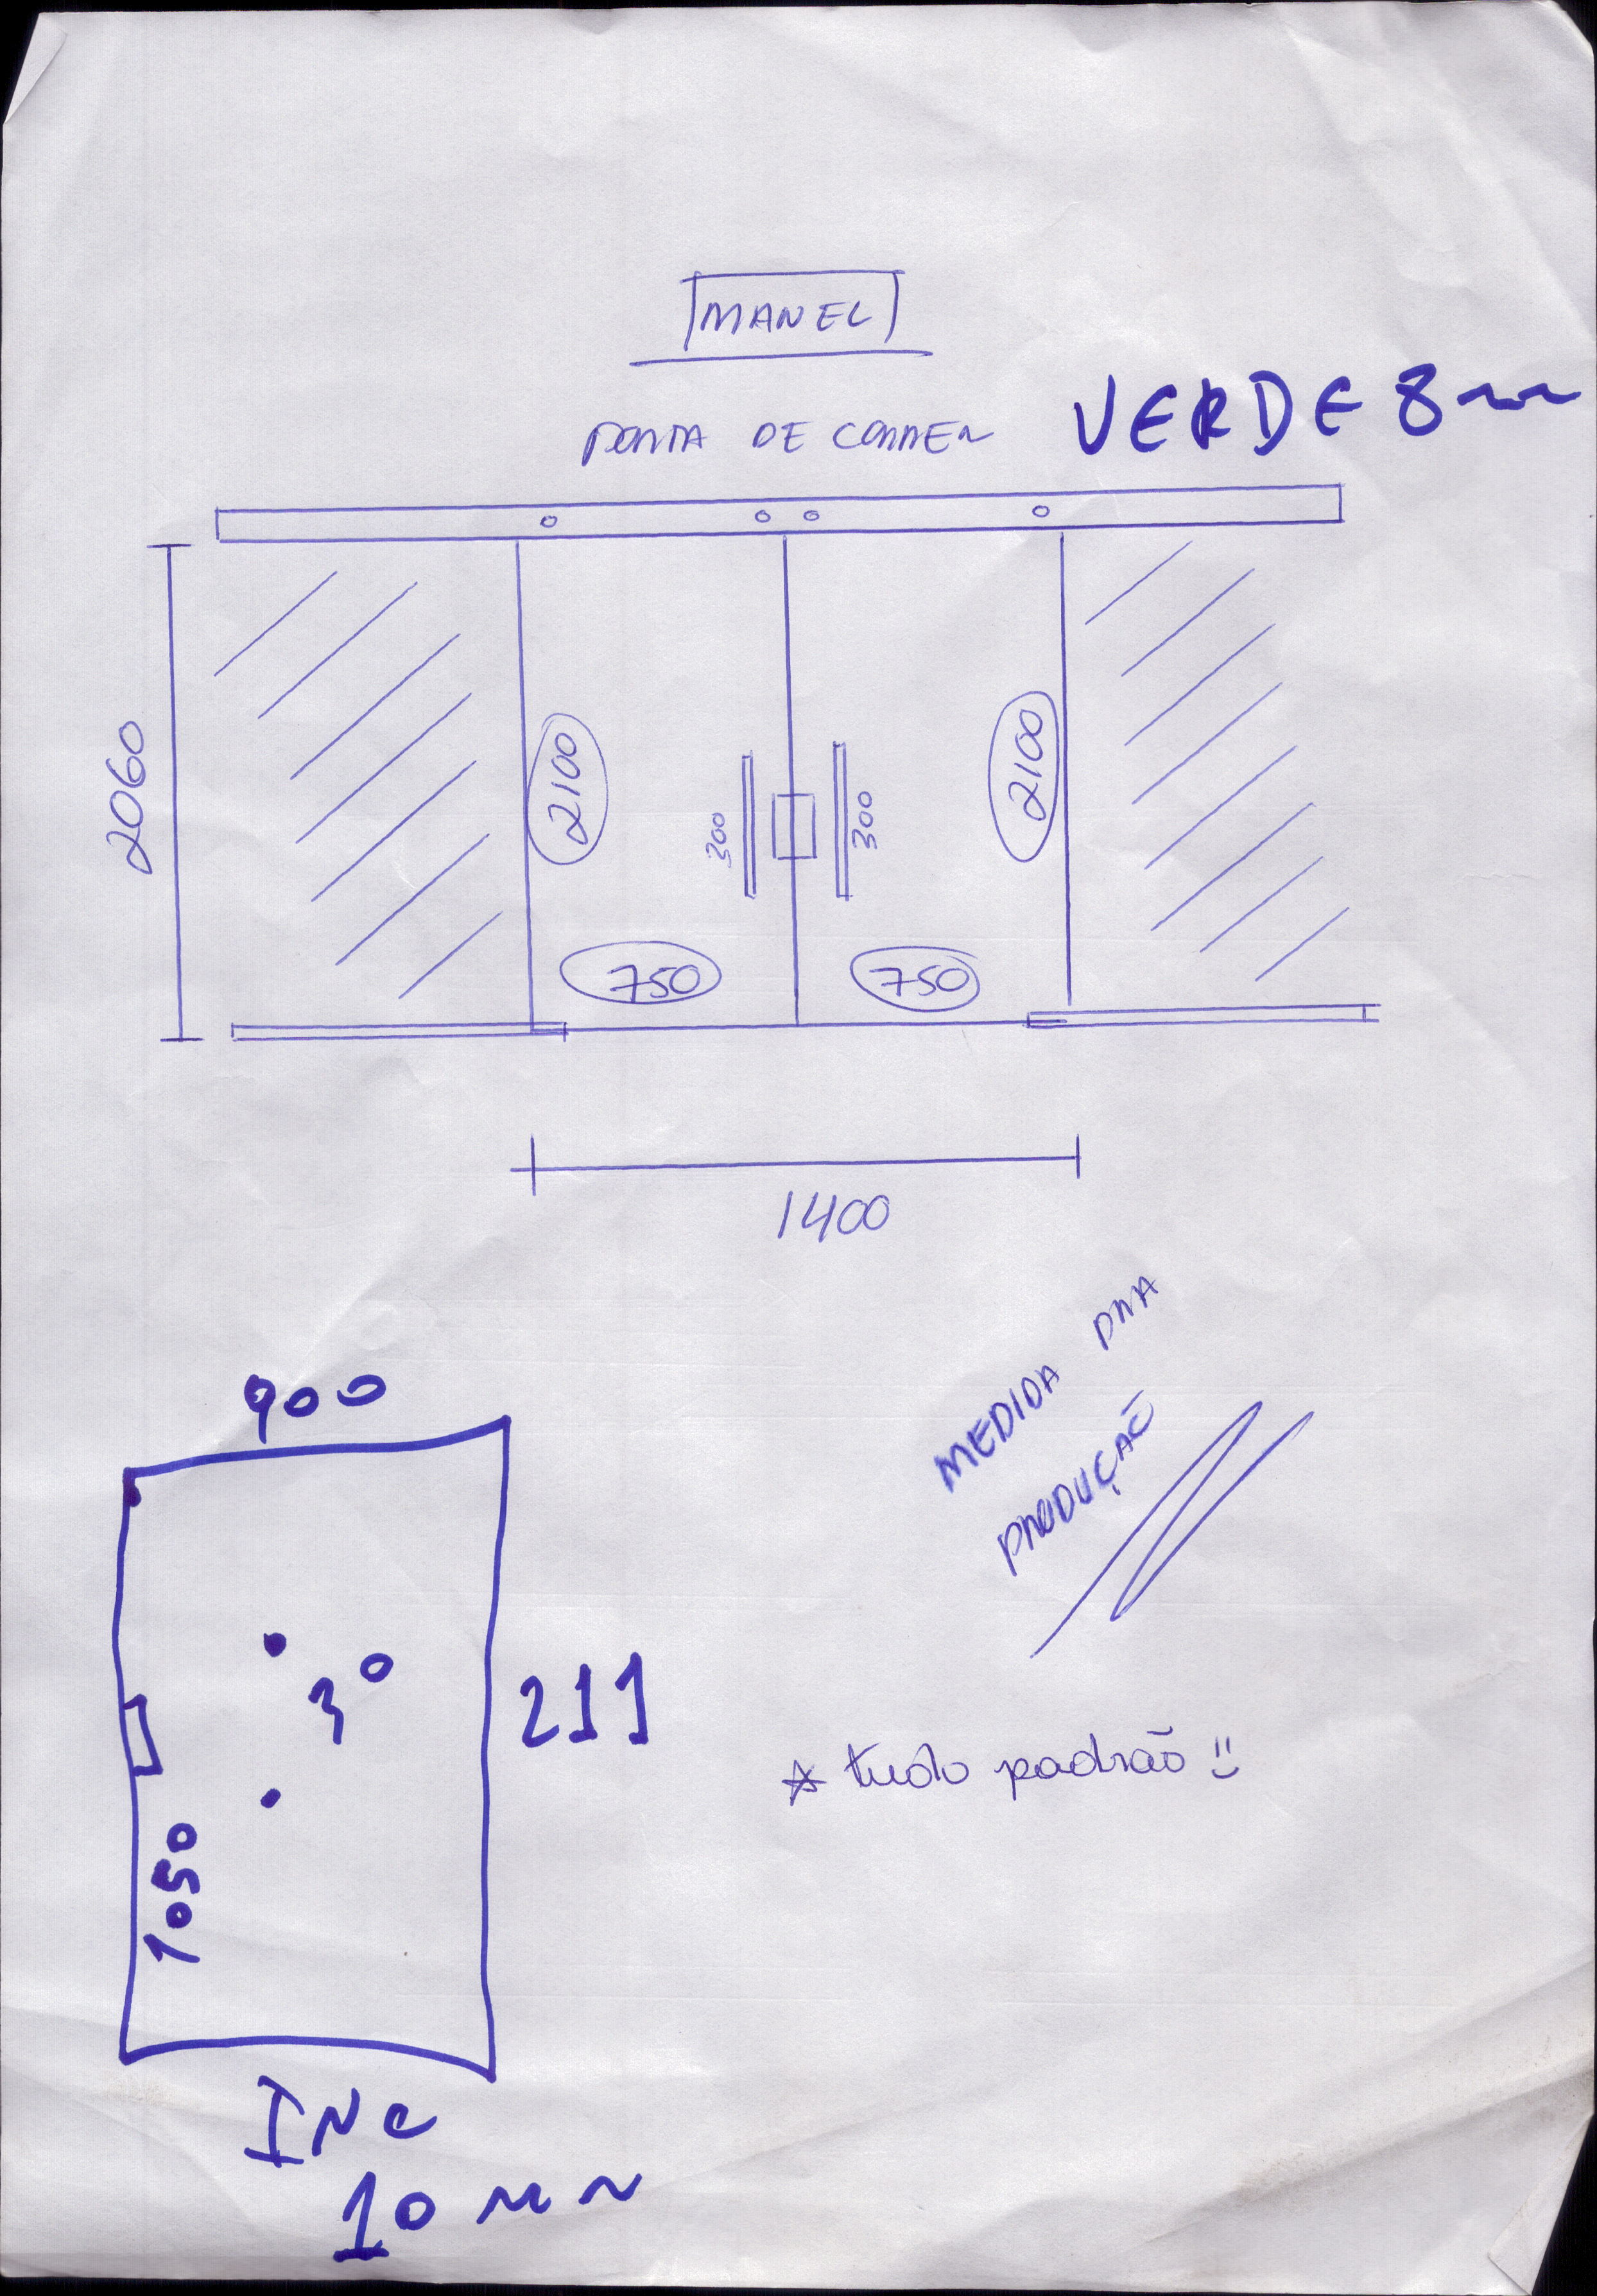 MANEL
PORTA DE CORRER
VERDE 8mm
2060
2100
2100
300
300
750
750
1400
MEDIDA PRA
PRODUÇÃO
900
30
211
1050
INC
10 mm
* tudo padrão